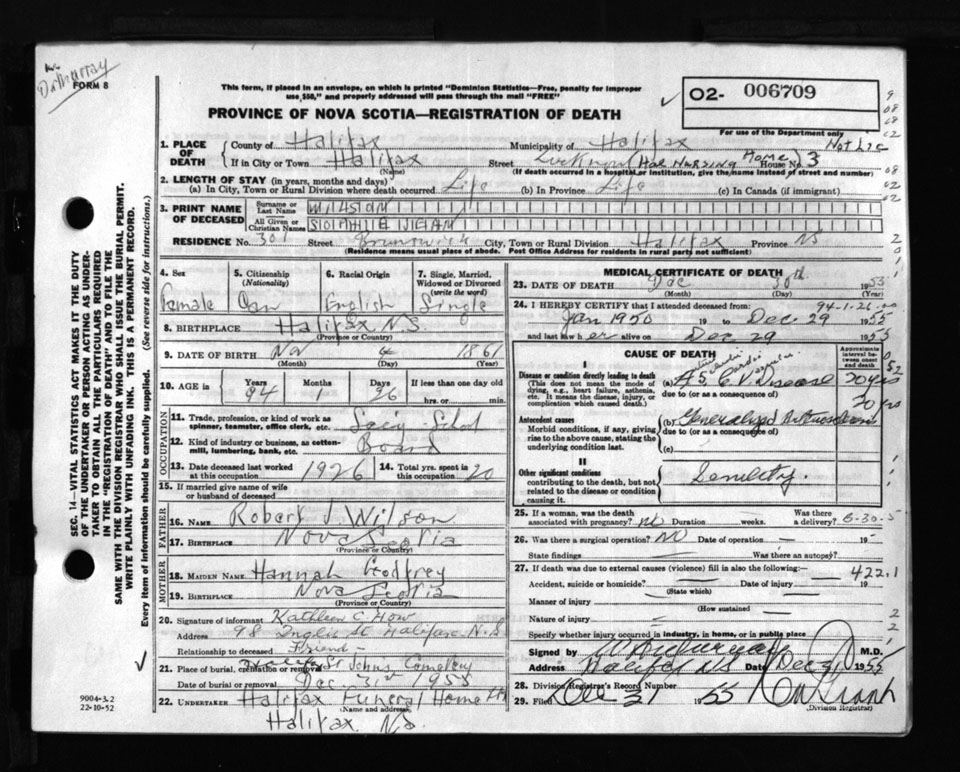 Dr Murray
FORM 8
This form, if placed in an envelope, on which is printed "Dominion Statistics—Free, penalty for improper
use $50," and properly addressed will pass through the mail "FREE"
PROVINCE OF NOVA SCOTIA—REGISTRATION OF DEATH
02- 006709
For use of the Department only
Not Lic
1. PLACE OF DEATH
County of Halifax Municipality of Halifax
If in City or Town Halifax Street Lucknow (Hal Nursing Home) House No. 3
(Name) (If death occurred in a hospital or institution, give the name instead of street and number)
2. LENGTH OF STAY (in years, months and days)
(a) In City, Town or Rural Division where death occurred Life (b) In Province Life (c) In Canada (if immigrant)
3. PRINT NAME OF DECEASED
Surname or Last Name WILSON
All Given or Christian Names SOPHIE JEAN
RESIDENCE No. 301 Street Brunswick City, Town or Rural Division Halifax Province NS
(Residence means usual place of abode. Post Office Address for residents in rural parts not sufficient)
4. Sex 5. Citizenship (Nationality) 6. Racial Origin 7. Single, Married, Widowed or Divorced (write the word)
Female Can English Single
8. BIRTHPLACE Halifax N.S.
(Province or Country)
9. DATE OF BIRTH Nov 4 1861
(Month) (Day) (Year)
10. AGE in Years Months Days If less than one day old
94 1 26 hrs. or min.
OCCUPATION
11. Trade, profession, or kind of work as spinner, teamster, office clerk, etc. Secy School
12. Kind of industry or business, as cotton-mill, lumbering, bank, etc. Board
13. Date deceased last worked at this occupation 1926 14. Total yrs. spent in this occupation 20
15. If married give name of wife or husband of deceased
FATHER
16. NAME Robert J Wilson
17. BIRTHPLACE Nova Scotia
(Province or Country)
MOTHER
18. MAIDEN NAME Hannah Godfrey
19. BIRTHPLACE Nova Scotia
(Province or Country)
20. Signature of informant Kathleen C. How
Address 98 Inglis St Halifax N.S
Relationship to deceased Friend
21. Place of burial, cremation or removal St Johns Cemetery
Date of burial or removal Dec. 31st 1955
22. UNDERTAKER Halifax Funeral Home
(Name and address)
Halifax N.S.
MEDICAL CERTIFICATE OF DEATH
23. DATE OF DEATH Dec 30th 1955
(Month) (Day) (Year)
24. I HEREBY CERTIFY that I attended deceased from: 94-1-26
Jan 1950 19 to Dec 29 1955
and last saw her alive on Dec 29 1955
CAUSE OF DEATH
Approximate interval between onset and death
I
Disease or condition directly leading to death
(This does not mean the mode of dying, e.g., heart failure, asthenia, etc. It means the disease, injury, or complication which caused death.)
(a) A.S.C.V. Disease 20 yrs
due to (or as a consequence of)
20 yrs
Antecedent causes
Morbid conditions, if any, giving rise to the above cause, stating the underlying condition last.
(b) Generalized
due to (or as a consequence of)
(c)
II
Other significant conditions
contributing to the death, but not related to the disease or condition causing it.
Senility.
25. If a woman, was the death associated with pregnancy? no Duration weeks. Was there a delivery?
6-30-5
26. Was there a surgical operation? NO Date of operation 19
State findings Was there an autopsy?
27. If death was due to external causes (violence) fill in also the following:— 422.1
Accident, suicide or homicide? Date of injury 19
(State which)
Manner of injury
(How sustained
Nature of injury
Specify whether injury occurred in industry, in home, or in public place
Signed by M.D.
Address Halifax N.S. Date Dec 31 1955
28. Division Registrar's Record Number
29. Filed Dec 31 1955
(Division Registrar)
SEC. 14—VITAL STATISTICS ACT MAKES IT THE DUTY
OF THE UNDERTAKER OR PERSON ACTING AS UNDER-
TAKER TO OBTAIN ALL THE PARTICULARS REQUIRED
IN THE "REGISTRATION OF DEATH" AND TO FILE THE
SAME WITH THE DIVISION REGISTRAR WHO SHALL ISSUE THE BURIAL PERMIT.
WRITE PLAINLY WITH UNFADING INK. THIS IS A PERMANENT RECORD.
Every item of information should be carefully supplied. (See reverse side for instructions.)
9004-3.2
22-10-52